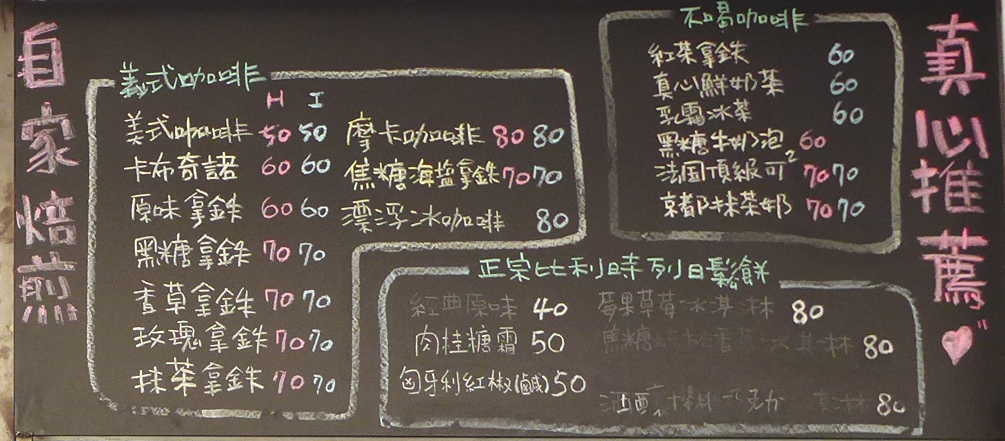 自家焙煎
美式咖啡
H I
美式咖啡 50 50
卡布奇諾 60 60
原味拿鉄 60 60
黑糖拿鉄 70 70
香草拿鉄 70 70
玫瑰拿鉄 70 70
抹茶拿鉄 70 70
摩卡咖啡 80 80
焦糖海盐拿鉄 70 70
漂浮冰咖啡 80
不喝咖啡
紅茶拿鉄 60
真心鮮奶茶 60
乳霜冰茶 60
黑糖牛奶泡 60
法国頂級可² 70 70
京都抹茶奶 70 70
正宗比利時列日鬆餅
紅典原味 40
肉桂糖霜 50
匈牙利紅椒(鹹) 50
莓果草莓冰淇淋 80
焦糖 香草冰淇淋 80
80
真心推薦"♥